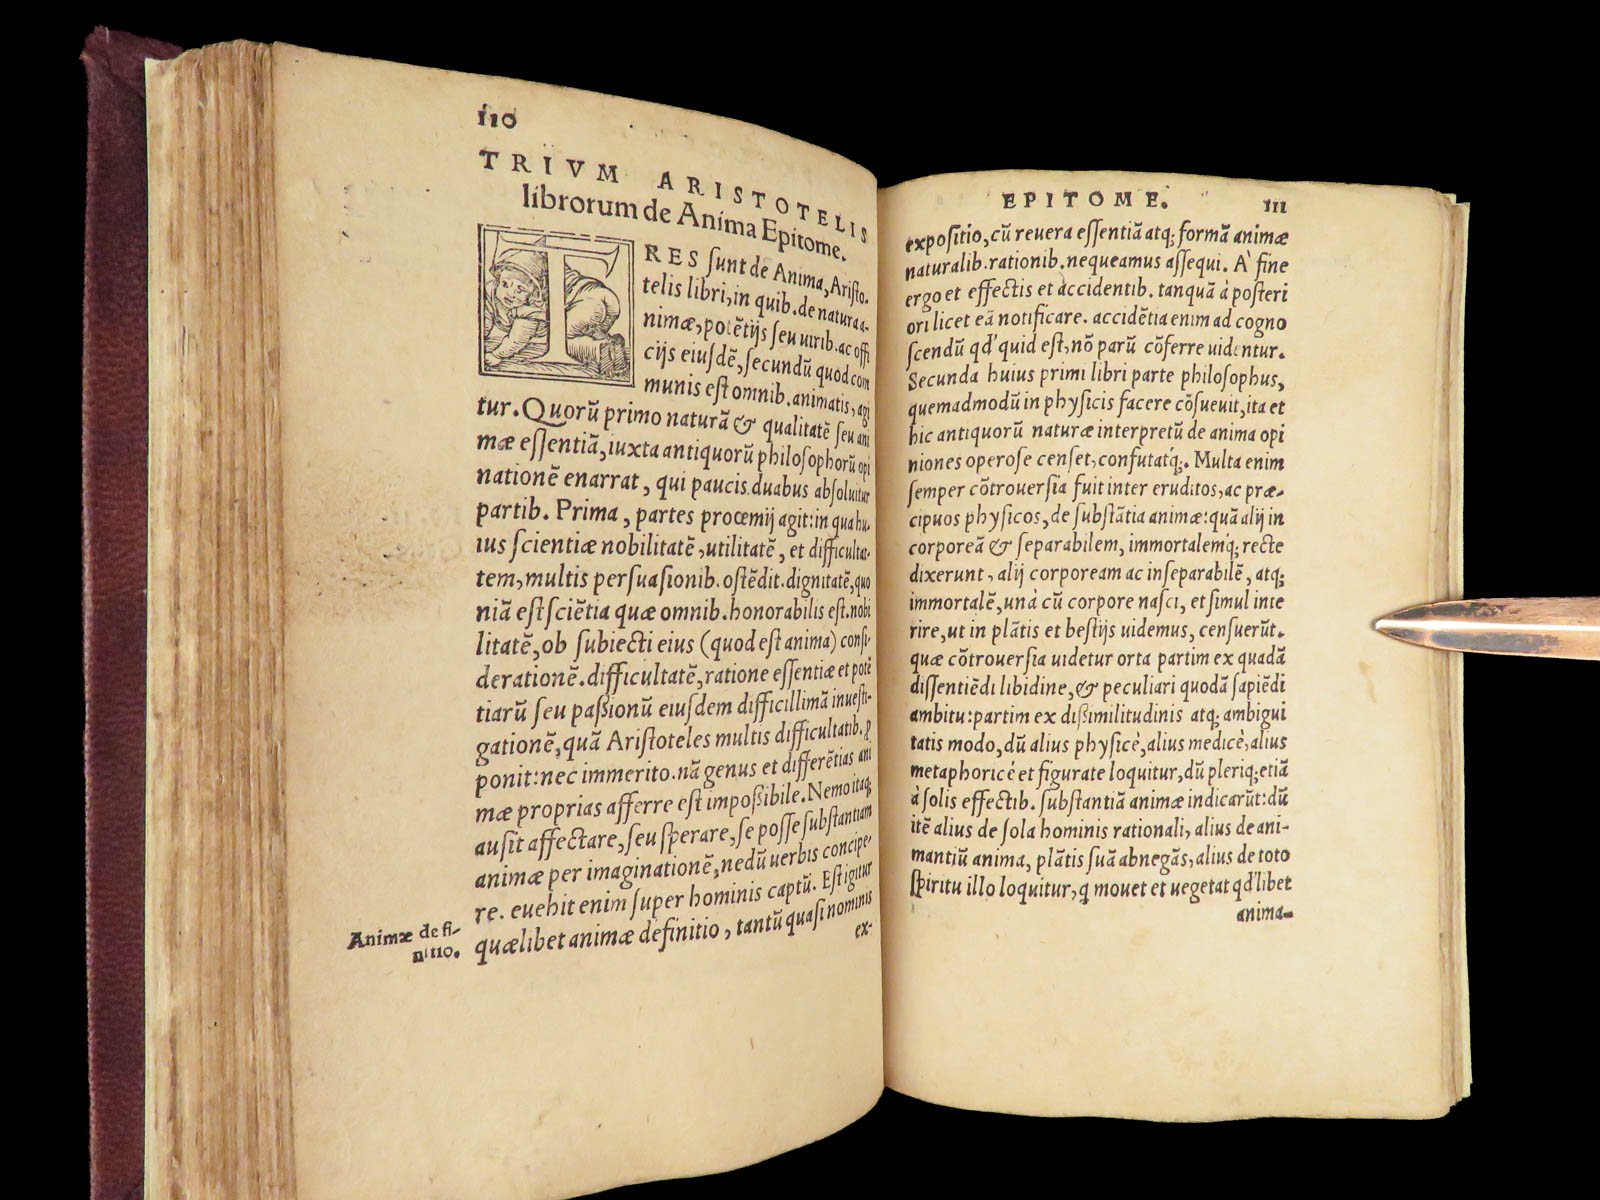 110
TRIVM ARISTOTELIS
librorum de Anima Epitome.
TRES ſunt de Anima, Ariſto-
telis libri, in quib. de natura a-
nimæ, potẽtijs ſeu uirib. ac offi
cijs eiuſdẽ, ſecundũ quod com
munis eſt omnib. animatis, agi
tur. Quorũ primo naturã & qualitatẽ ſeu ani
mæ eſſentiã, iuxta antiquorũ philoſophorũ opi
nationẽ enarrat, qui paucis duabus abſoluitur
partib. Prima, partes procemij agit: in qua hu-
ius ſcientiæ nobilitatẽ, utilitatẽ, et difficulta-
tem, multis perſuaſionib. oſtẽdit. dignitatẽ, quo
niã eſt ſciẽtia quæ omnib. honorabilis eſt. nobi
litatẽ, ob ſubiecti eius (quod eſt anima) conſi-
derationẽ. difficultatẽ, ratione eſſentiæ et potẽ
tiarũ ſeu paſſionũ eiuſdem difficillimã inueſti-
gationẽ, quã Ariſtoteles multis difficultatib. ꝓ
ponit: nec immerito. nã genus et differẽtias ani
mæ proprias afferre eſt impoßibile. Nemo itaq;
auſit affectare, ſeu ſperare, ſe poſſe ſubſtantiam
animæ per imaginationẽ, nedũ uerbis concipe-
re. euehit enim ſuper hominis captũ. Eſt igitur
quælibet animæ definitio, tantũ quaſi nominis
ex-
Animæ defi-
nitio.
EPITOME. 111
expoſitio, cũ reuera eſſentiã atq; formã animæ
naturalib. rationib. nequeamus aſſequi. A' fine
ergo et effectis et accidentib. tanquã à poſteri
ori licet eã notificare. accidẽtia enim ad cogno
ſcendũ qd' quid eſt, nõ parũ cõferre uidentur.
Secunda huius primi libri parte philoſophus,
quemadmodũ in phyſicis facere cõſueuit, ita et
hic antiquorũ naturæ interpretũ de anima opi
niones operoſe cenſet, confutatq́;. Multa enim
ſemper cõtrouerſia fuit inter eruditos, ac præ-
cipuos phyſicos, de ſubſtãtia animæ: quã alij in
corpoream & ſeparabilem, immortalemq́; recte
dixerunt, alij corpoream ac inſeparabilẽ, atq;
immortalẽ, unà cũ corpore naſci, et ſimul inte
rire, ut in plãtis et beſtijs uidemus, cenſuerũt.
quæ cõtrouerſia uidetur orta partim ex quadã
diſſentiẽdi libidine, & peculiari quodã ſapiẽdi
ambitu: partim ex dißimilitudinis atq; ambigui
tatis modo, dũ alius phyſicè, alius medicè, alius
metaphoricè et figurate loquitur, dũ pleriq; etiã
à ſolis effectib. ſubſtantiã animæ indicarũt: dũ
itẽ alius de ſola hominis rationali, alius de ani-
mantiũ anima, plãtis ſuã abnegãs, alius de toto
ſpiritu illo loquitur, q mouet et uegetat qd'libet
anima-